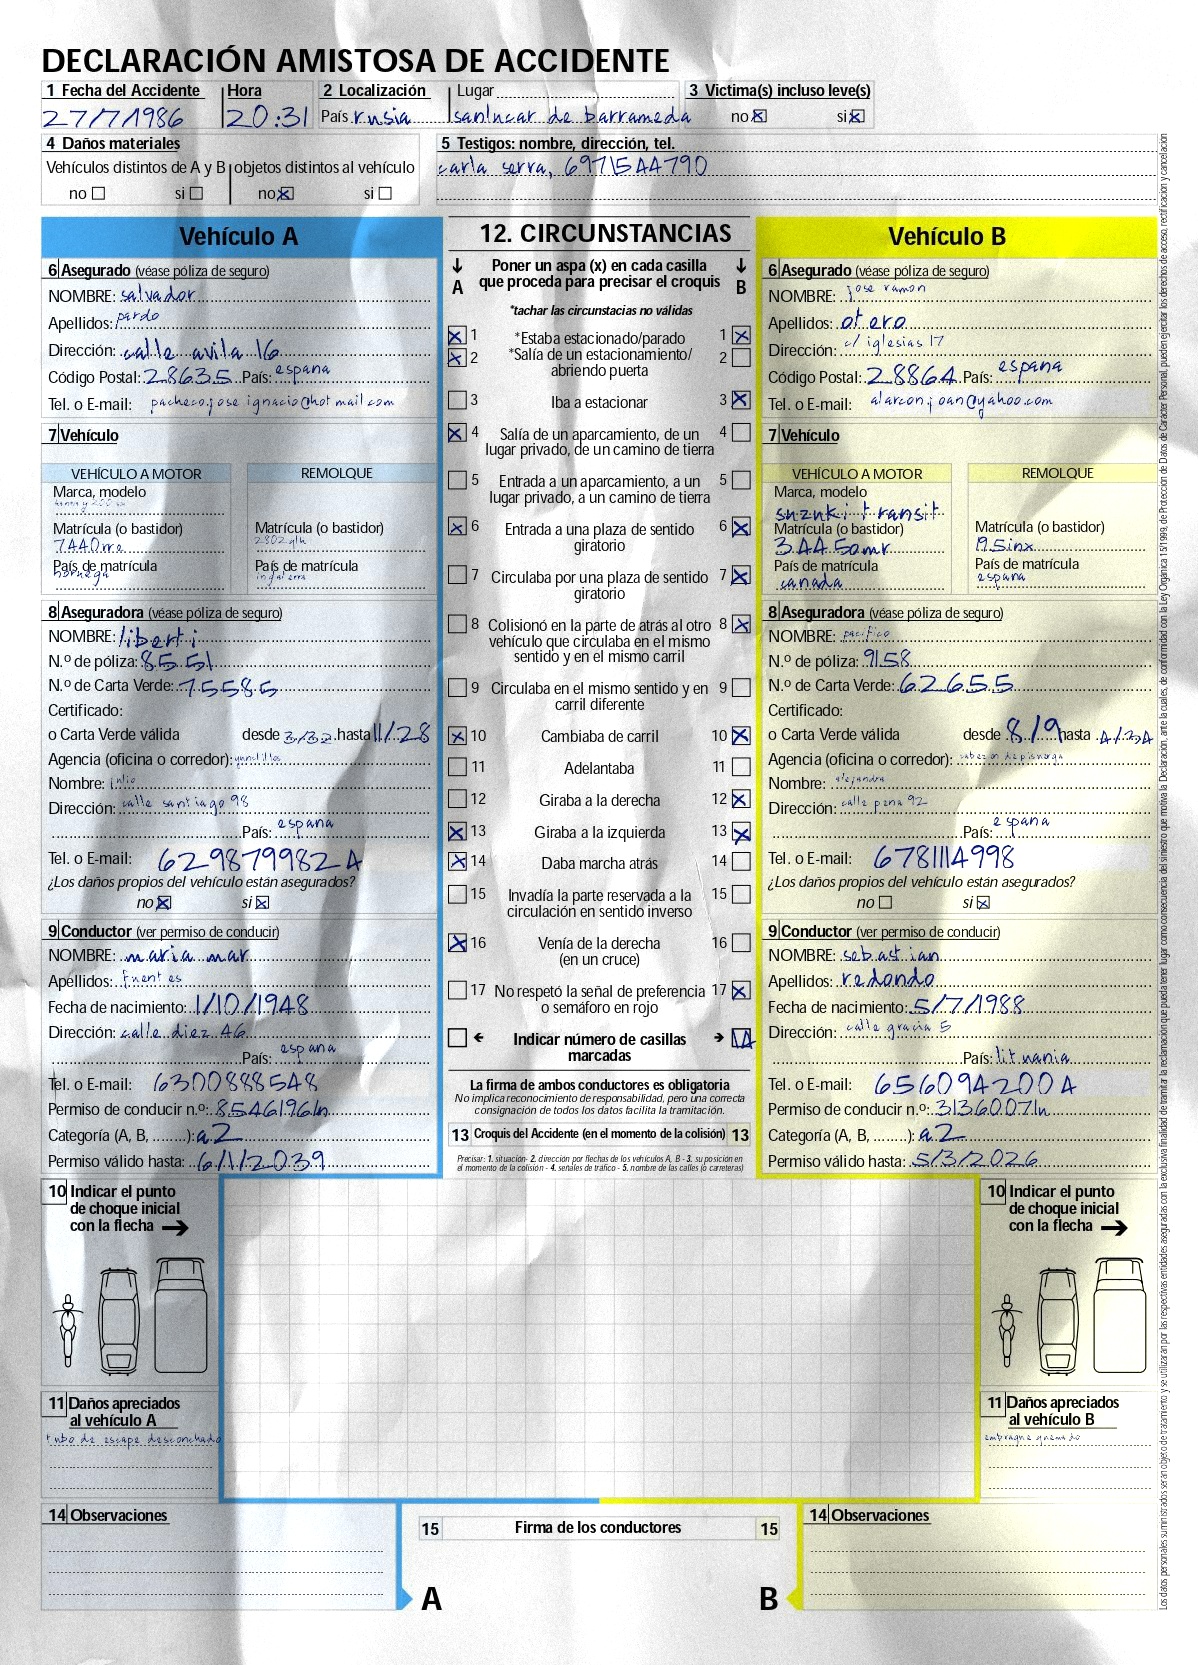 DECLARACIÓN AMISTOSA DE ACCIDENTE
1 Fecha del Accidente Hora 2 Localización Lugar 3 Victima(s) incluso leve(s)
27/7/1986 20:31 País rusia sanlucar de barrameda no si
4 Daños materiales 5 Testigos: nombre, dirección, tel.
Vehículos distintos de A y B objetos distintos al vehículo carla serra, 6971544790
no si no si
Vehículo A
6 Asegurado (véase póliza de seguro)
NOMBRE: salvador
Apellidos: pardo
Dirección: calle avila 16
Código Postal: 28635 País: espana
Tel. o E-mail: pacheco.jose ignacio@hotmail.com
7 Vehículo
VEHÍCULO A MOTOR REMOLQUE
Marca, modelo
Matrícula (o bastidor) Matrícula (o bastidor)
7440rra 2802glh
País de matrícula País de matrícula
noruega inglaterra
8 Aseguradora (véase póliza de seguro)
NOMBRE: liberti
N.º de póliza: 8551
N.º de Carta Verde: 75585
Certificado:
o Carta Verde válida desde 3/32 hasta 11/28
Agencia (oficina o corredor):
Nombre: julio
Dirección: calle santiago 98
País: espana
Tel. o E-mail: 6298799824
¿Los daños propios del vehículo están asegurados?
no si
9 Conductor (ver permiso de conducir)
NOMBRE: maria mar
Apellidos: fuentes
Fecha de nacimiento: 1/10/1948
Dirección: calle diez 46
País: espana
Tel. o E-mail: 6300888548
Permiso de conducir n.º: 8546196ln
Categoría (A, B, ........): a2
Permiso válido hasta: 6/1/2039
12. CIRCUNSTANCIAS
A Poner un aspa (x) en cada casilla que proceda para precisar el croquis B
*tachar las circunstacias no válidas
1 *Estaba estacionado/parado 1
2 *Salía de un estacionamiento/ 2
abriendo puerta
3 Iba a estacionar 3
4 Salía de un aparcamiento, de un 4
lugar privado, de un camino de tierra
5 Entrada a un aparcamiento, a un 5
lugar privado, a un camino de tierra
6 Entrada a una plaza de sentido 6
giratorio
7 Circulaba por una plaza de sentido 7
giratorio
8 Colisionó en la parte de atrás al otro 8
vehículo que circulaba en el mismo
sentido y en el mismo carril
9 Circulaba en el mismo sentido y en 9
carril diferente
10 Cambiaba de carril 10
11 Adelantaba 11
12 Giraba a la derecha 12
13 Giraba a la izquierda 13
14 Daba marcha atrás 14
15 Invadía la parte reservada a la 15
circulación en sentido inverso
16 Venía de la derecha 16
(en un cruce)
17 No respetó la señal de preferencia 17
o semáforo en rojo
Indicar número de casillas 14
marcadas
La firma de ambos conductores es obligatoria
No implica reconocimiento de responsabilidad, pero una correcta
consignación de todos los datos facilita la tramitación.
13 Croquis del Accidente (en el momento de la colisión) 13
Precisar: 1. situación- 2. dirección por flechas de los vehículos A, B - 3. su posición en
el momento de la colisión - 4. señales de tráfico - 5. nombre de las calles (o carreteras)
Vehículo B
6 Asegurado (véase póliza de seguro)
NOMBRE: jose ramon
Apellidos: otero
Dirección: c/ iglesias 17
Código Postal: 28864 País: espana
Tel. o E-mail: alarcon.joan@yahoo.com
7 Vehículo
VEHÍCULO A MOTOR REMOLQUE
Marca, modelo
suzuki transit
Matrícula (o bastidor) Matrícula (o bastidor)
3445omr 195inx
País de matrícula País de matrícula
canada espana
8 Aseguradora (véase póliza de seguro)
NOMBRE: pacifico
N.º de póliza: 9158
N.º de Carta Verde: 62655
Certificado:
o Carta Verde válida desde 8/9 hasta 4/34
Agencia (oficina o corredor): cabezon de pisuerga
Nombre: alejandra
Dirección: calle pena 92
País: espana
Tel. o E-mail: 6781114998
¿Los daños propios del vehículo están asegurados?
no si
9 Conductor (ver permiso de conducir)
NOMBRE: sebastian
Apellidos: redondo
Fecha de nacimiento: 5/7/1988
Dirección: calle gracia 5
País: lituania
Tel. o E-mail: 6560942004
Permiso de conducir n.º: 3136007ln
Categoría (A, B, ........): a2
Permiso válido hasta: 5/3/2026
10 Indicar el punto
de choque inicial
con la flecha
10 Indicar el punto
de choque inicial
con la flecha
11 Daños apreciados
al vehículo A
tubo de escape desconchado
11 Daños apreciados
al vehículo B
embrague quemado
14 Observaciones
15 Firma de los conductores 15
A B
14 Observaciones
Los datos personales suministrados seran objeto de tratamiento y se utilizaran por las respectivas entidades aseguradas con la exclusiva finalidad de tramitar la reclamación que pueda tener lugar como consecuencia del siniestro que motiva la Declaración, ante la cuales, de conformidad con la Ley Orgánica 15/1999, de Protección de Datos de Carácter Personal, pueden ejercitar los derechos de acceso, rectificación y cancelación